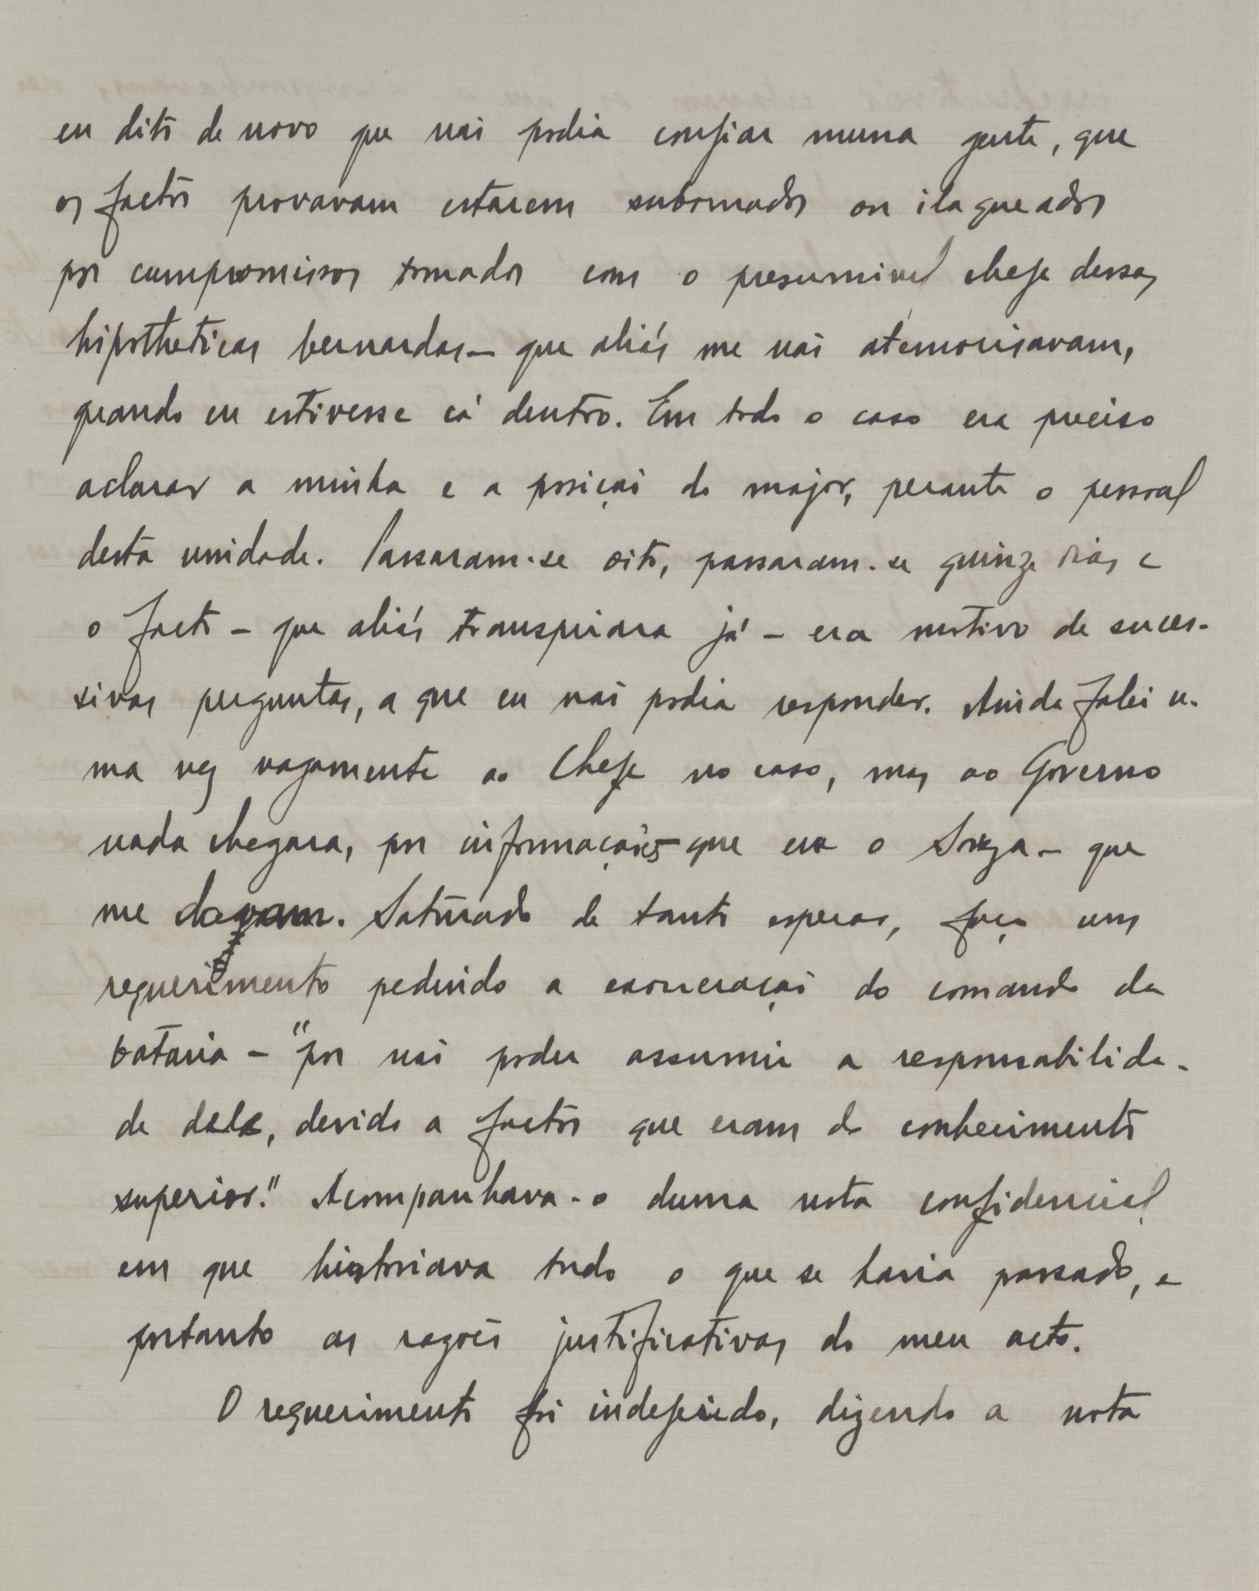 eu dito de novo que não podia confiar numa gente, que
os factos provavam estarem subornados ou ilaqueados
por cumpromissos tomados com o presumivel chefe dessas
hipotheticas bernardas — que aliás me não atemorisavam,
quando eu estivesse cá dentro. Em todo o caso era preciso
aclarar a minha e a posição do major, perante o pessoal
desta unidade. Passaram-se oito, passaram-se quinze dias e
o facto — que aliás transpirara já — era motivo de suces-
sivas perguntas, a que eu não podia responder. Ainda falei u-
ma vez vagamente ao Chefe no caso, mas ao Governo
nada chegara, por informações — que era o Souza — que
me davam. Saturado de tanto esperar, faço um
requerimento pedindo a exoneração do comando da
bataria — "por não poder assumir a responsabilida-
de dele, devido a factos que eram do conhecimento
superior." Acompanhava-o duma nota confidencial
em que historiava tudo o que se havia passado, e
portanto as razões justificativas do meu acto.
O requerimento foi indeferido, dizendo a nota